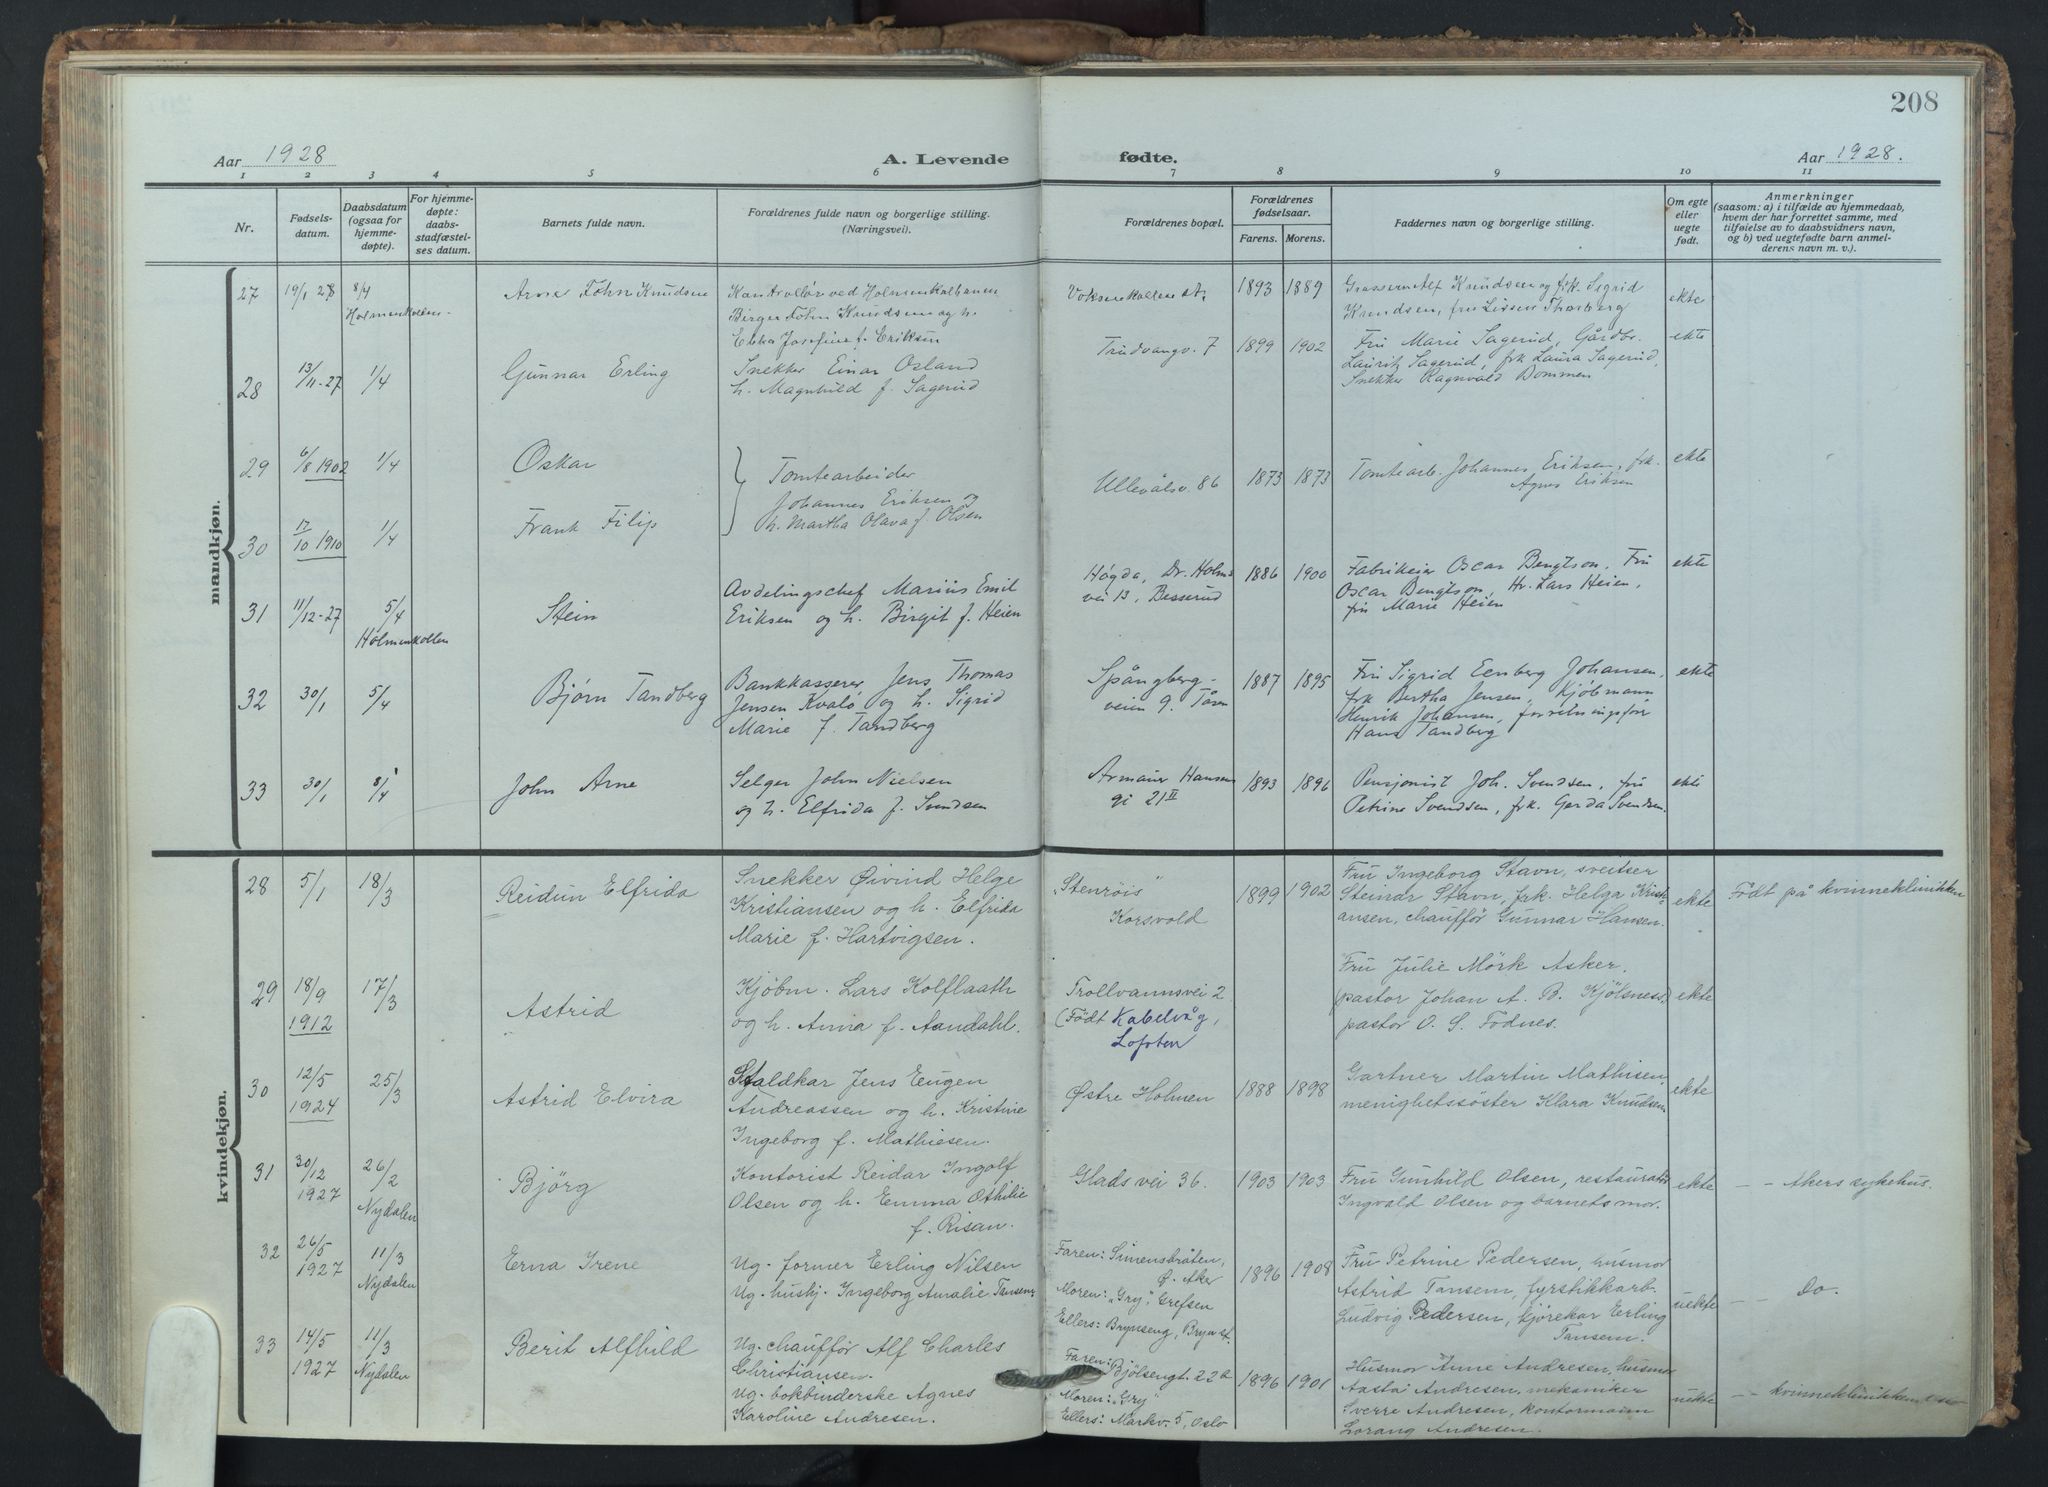 208
Aar 1928
A. Levende fødte.
Aar 1928.
1 2 3 4 5 6 7 8 9 10 11
Nr.
Fødsels-
datum.
Daabsdatum
(ogsaa for
hjemme-
døpte).
For hjemme-
døpte:
daabs-
stadfæstel-
ses datum.
Barnets fulde navn.
Forældrenes fulde navn og borgerlige stilling.
(Næringsvei).
Forældrenes bopæl.
Forældrenes
fødselsaar.
Farens. Morens.
Faddernes navn og borgerlig stilling.
Om egte
eller
uegte
født.
Anmerkninger
(saasom: a) i tilfælde av hjemmedaab,
hvem der har forrettet samme, med
tilføielse av to daabsvidners navn,
og b) ved uegtefødte barn anmel-
derens navn m. v.).
mandkjøn.
27 19/1 28 8/4
Holmenkollen
Arne John Knudsen
Kontrollør ved Holmenkolbanen
Birger John Knudsen og h.
Ebba Josefine f. Eriksen
Voksenkollen st.
1893 1889
Grosserer Alf Knudsen og frk. Sigrid
Knudsen, fru Lissen Thorberg
ekte
28 13/11-27 1/4
Gunnar Erling
Snekker Einar Osland
h. Magnhild f. Sagerud
Trudvangv. 7
1899 1902
Fru Marie Sagerud, Gårdbr.
Lauritz Sagerud, frk Laura Sagerud,
Snekker Ragnvald Bommen
ekte
29 6/8 1902 1/4
Oskar
30 17/10 1910 1/4
Frank Filip
Tomtearbeider
Johannes Eriksen og
h. Martha Olava f. Olsen
Ullevålsv. 86
1873 1873
Tomtearb. Johannes Eriksen, frk.
Agnes Eriksen
ekte
31 11/12-27 5/4
Holmenkollen
Stein
Avdelingschef Marius Emil
Eriksen og h. Birgit f. Heien
Høgda, Dr. Holms
vei 13, Besserud
1886 1900
Fabrikeier Oscar Bengtson, Fru
Oscar Bengtson, Hr. Lars Heien,
fru Marie Heien
ekte
32 30/1 5/4
Bjørn Tandberg
Bankkasserer Jens Thomas
Jensen Kvalø og h. Sigrid
Marie f. Tandberg
Spångberg-
veien 9. Tåsen
1887 1895
Fru Sigrid Eenberg Johansen,
frk Bertha Jensen, Kjøbmann
Henrik Johansen, forretningsfører
Hans Tandberg
ekte
33 30/1 8/4
John Arne
Selger John Nielsen
og h. Elfrida f. Svendsen
Armauer Hansens
g. 21 II
1893 1896
Pensjonist Joh. Svendsen, fru
Petrine Svendsen, frk. Gerda Svendsen.
ekte
kvindekjøn.
28 5/1 18/3
Reidun Elfrida
Snekker Øivind Helge
Kristiansen og h. Elfrida
Marie f. Hartvigsen.
"Stenröis"
Korsvold
1899 1902
Fru Ingeborg Stavn, sveitser
Steinar Stavn, frk. Helga Kristi-
ansen, chauffør Gunnar Hansen.
ekte
Født på kvinneklinikken
29 18/9 1912 17/3
Astrid
Kjøbm. Lars Kolflaath
og h. Anna f. Aandahl.
Trollvannsvei 2
(Født Kabelvåg,
Lofoten
Fru Julie Mörk Asker.
pastor Johan A. B. Kjølsnes.
pastor O. S. Fodnes.
ekte
30 12/5 1924 25/3
Astrid Elvira
Staldkar Jens Eugen
Andreassen og h. Kristine
Ingeborg f. Mathiesen.
Østre Holmen
1888 1898
Gartner Martin Mathisen,
menighetssøster Klara Knudsen
ekte
31 30/12 1927 26/2
Nydalen
Bjørg
Kontorist Reidar Ingolf
Olsen og h. Emma Othilie
f. Risan.
Glads vei 36.
1903 1903
Fru Gunhild Olsen, restauratør
Ingvald Olsen og barnets mor.
ekte
- - Akers sykehus.
32 26/5 1927 11/3
Nydalen
Erna Irene
Ug. former Erling Nilsen
Ug. hushj. Ingeborg Amalie Tansem
Faren: Simensbråten,
Ø. Aker
Moren: "Gry", Grefsen
Ellers: Brynseng, Bryn st.
1896 1908
Fru Petrine Pedersen, husmor
Astrid Tansem, fyrstikkarb.
Ludvig Pedersen, kjørekar Erling
Tansem.
uekte
- - Do.
33 14/5 1927 11/3
Nydalen
Berit Alfhild
Ug. chauffør Alf Charles
Christiansen.
Ug. bokbinderske Agnes
Karoline Andresen.
Faren: Bjølsengt. 22a
Moren: "Gry"
Ellers: Markv. 5, Oslo
1896 1901
Husmor Anne Andresen, husmor
Aasta Andresen, mekaniker
Sverre Andresen, kontormann
Lorang Andresen.
uekte
- - kvinneklinikken